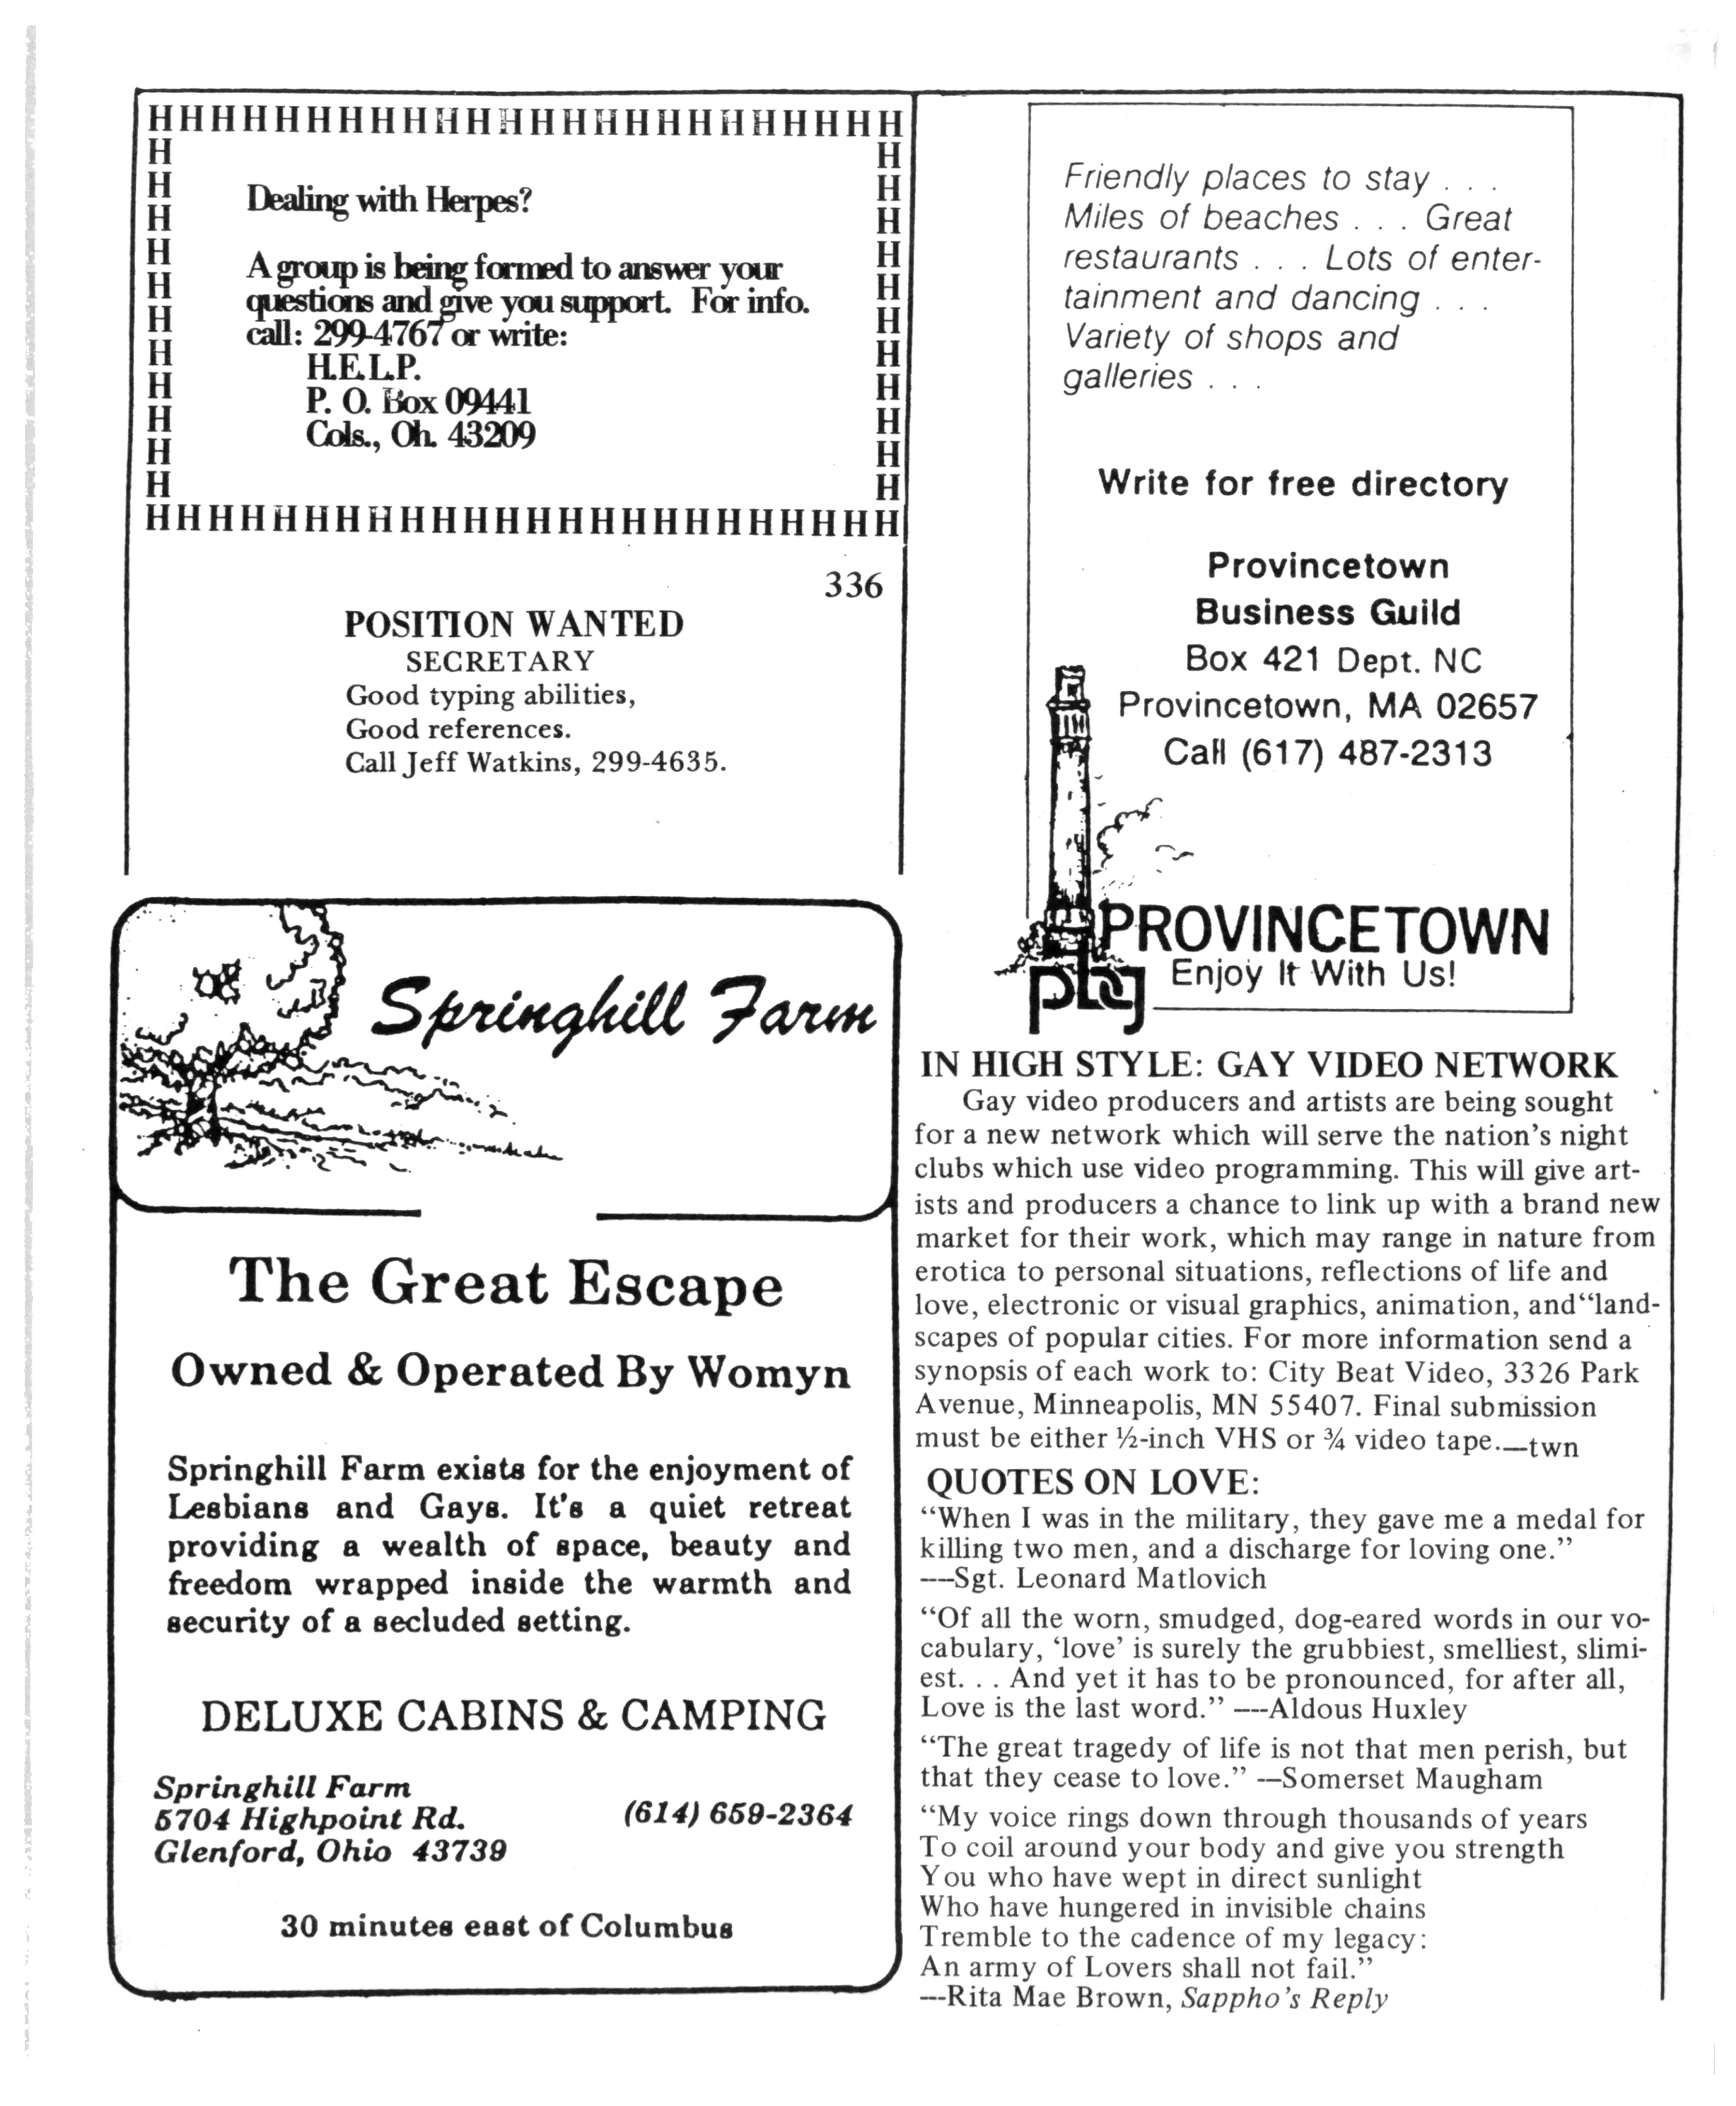 HHHHHHHHHHHHHHHHHHHHHHHH
Dealing with Herpes?
A group is being formed to answer your
questions and give you support. For info.
call: 299-4767 or write:
H.E.L.P.
P. O. Box 09441
Cols., Oh. 43209
HHHHHHHHHHHHHHHHHHHHHHHH
336
POSITION WANTED
SECRETARY
Good typing abilities,
Good references.
Call Jeff Watkins, 299-4635.
Springhill Farm
The Great Escape
Owned & Operated By Womyn
Springhill Farm exists for the enjoyment of
Lesbians and Gays. It's a quiet retreat
providing a wealth of space, beauty and
freedom wrapped inside the warmth and
security of a secluded setting.
DELUXE CABINS & CAMPING
Springhill Farm
5704 Highpoint Rd.
Glenford, Ohio 43739
(614) 659-2364
30 minutes east of Columbus
Friendly places to stay . . .
Miles of beaches . . . Great
restaurants . . . Lots of enter-
tainment and dancing . . .
Variety of shops and
galleries . . .
Write for free directory
Provincetown
Business Guild
Box 421 Dept. NC
Provincetown, MA 02657
Call (617) 487-2313
PROVINCETOWN
pbg
Enjoy It With Us!
IN HIGH STYLE: GAY VIDEO NETWORK
Gay video producers and artists are being sought
for a new network which will serve the nation's night
clubs which use video programming. This will give art-
ists and producers a chance to link up with a brand new
market for their work, which may range in nature from
erotica to personal situations, reflections of life and
love, electronic or visual graphics, animation, and“land-
scapes of popular cities. For more information send a
synopsis of each work to: City Beat Video, 3326 Park
Avenue, Minneapolis, MN 55407. Final submission
must be either ½-inch VHS or ¾ video tape.—twn
QUOTES ON LOVE:
“When I was in the military, they gave me a medal for
killing two men, and a discharge for loving one.”
---Sgt. Leonard Matlovich
“Of all the worn, smudged, dog-eared words in our vo-
cabulary, ‘love’ is surely the grubbiest, smelliest, slimi-
est. . . And yet it has to be pronounced, for after all,
Love is the last word.” ---Aldous Huxley
“The great tragedy of life is not that men perish, but
that they cease to love.” --Somerset Maugham
“My voice rings down through thousands of years
To coil around your body and give you strength
You who have wept in direct sunlight
Who have hungered in invisible chains
Tremble to the cadence of my legacy:
An army of Lovers shall not fail.”
---Rita Mae Brown, Sappho's Reply